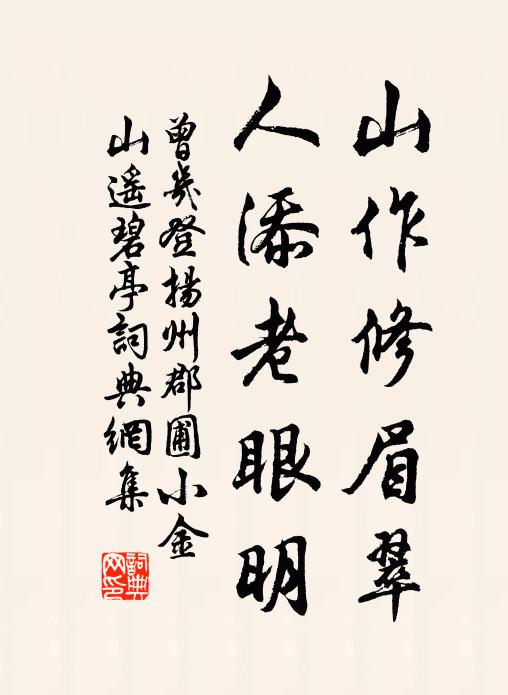 山作修眉翠
人添老眼明
曾几登揚州郡圃小金
山遥碧亭詞典網集
詞典
网印